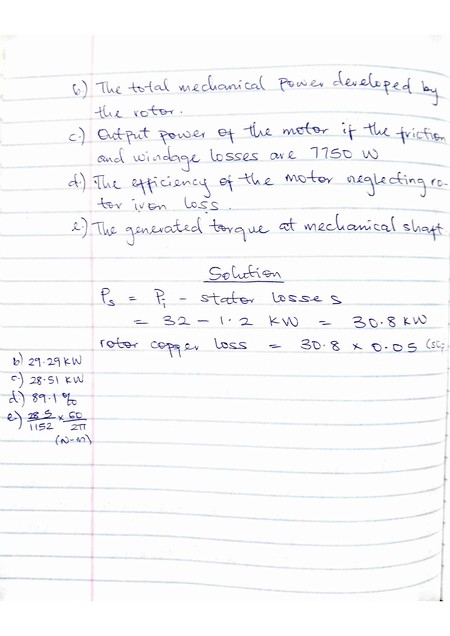 b) The total mechanical power developed by
the rotor.
c) Output power of the motor if the friction
and windage losses are 7750 W
d) The efficiency of the motor neglecting ro-
tor iron loss.
e) The generated torque at mechanical shaft
Solution
Ps = Pi - stator losses
= 32 - 1.2 KW = 30.8 KW
rotor copper loss = 30.8 x 0.05
b) 29.29 KW
c) 28.51 KW
d) 89.1 %
e) 28.5/1152 x 60/2π
(N-m)